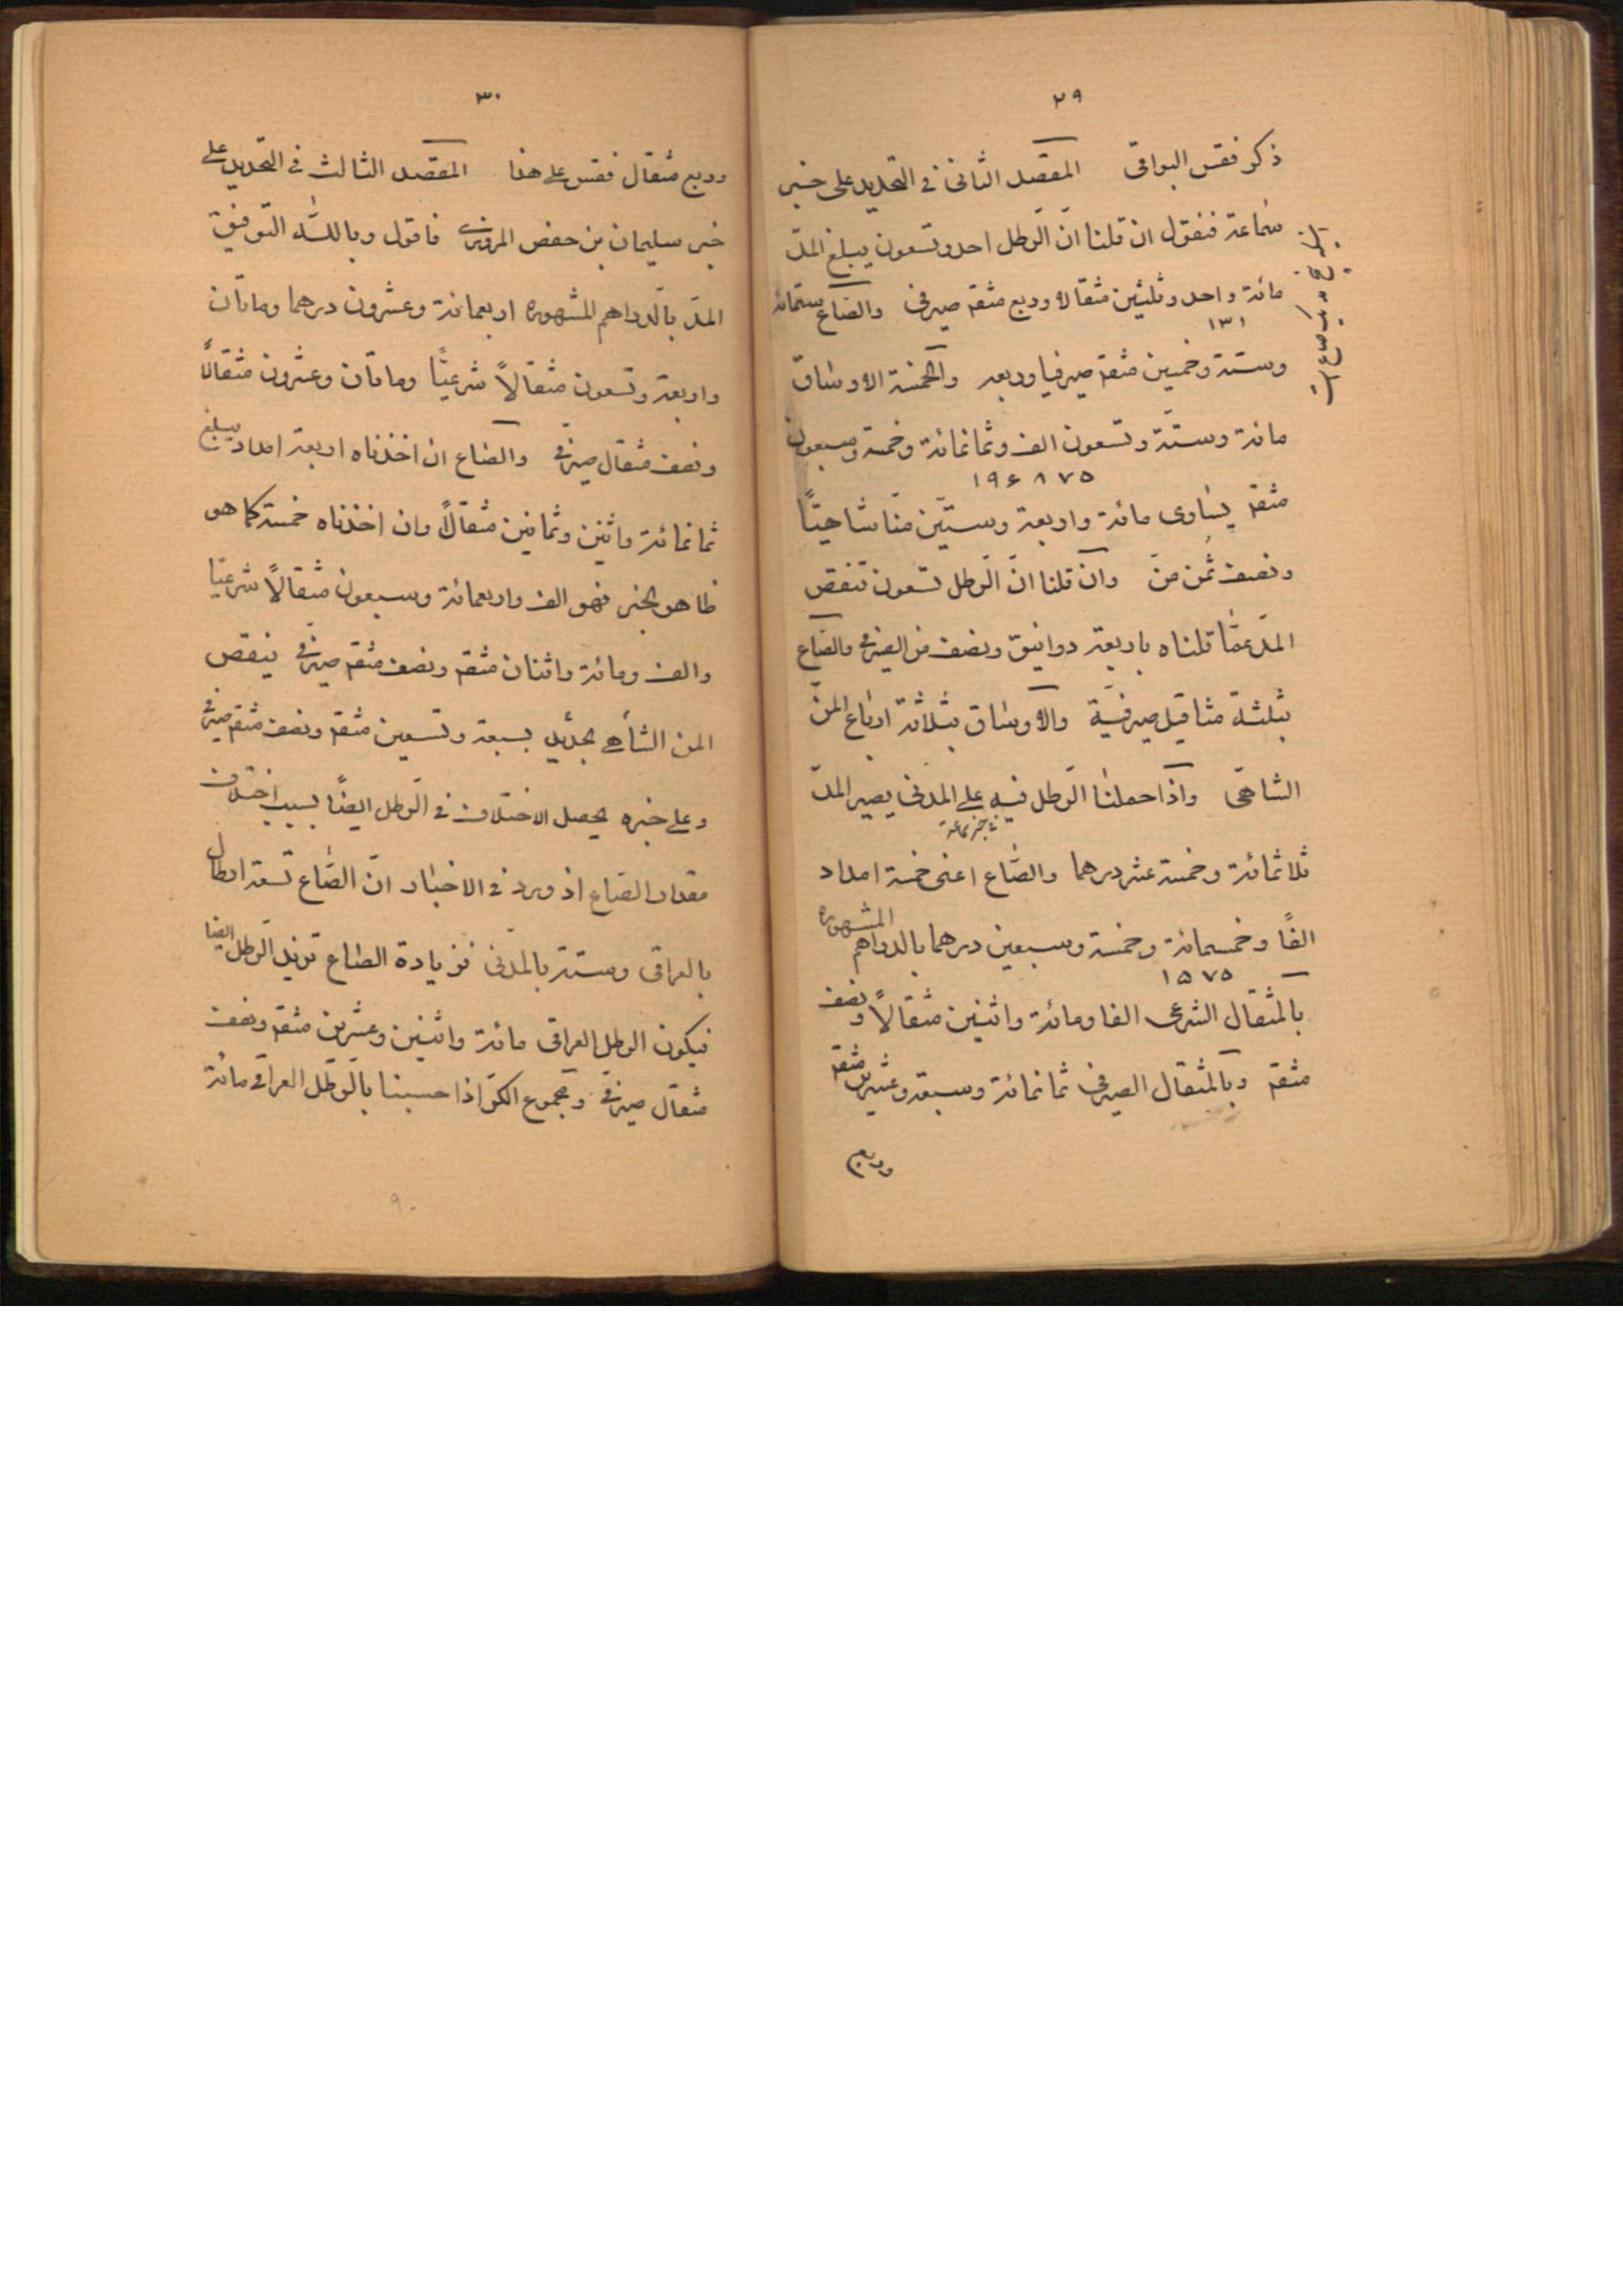 ٢٩
ذكر فقس البواقى المقصد الثانى فى التحديد على خبر
سماعة فنقول ان قلنا انّ الرّطل احد وتسعون يبلغ المدّ
مائة واحد وثلثين مثقالا وربع مثقم صيرفى والصّاع ستمائة
١٣١
وستة وخمسين مثقم صيرفيا وربعه والخمسة الاوساق
مائة وستّة وتسعون الف وثمانمائة وخمسة وسبعون
١٩۶٨٧۵
مثقم يساوى مائة واربعة وستّين منّا شاهيّاً
ونصف ثمن منّ وان قلنا انّ الرّطل تسعون تنقص
المدّ عمّا قلناه باربعة دوانيق ونصف من الصيرفى والصّاع
بثلثة مثاقيل صيرفيّة والاوساق بثلاثة ارباع المنّ
الشاهى واذا حملنا الرّطل فيه على المدنى يصير المدّ
ثلاثمائة وخمسة عشر درهما والصّاع اعنى خمسة امداد
الفاً وخمسمائة وخمسة وسبعين درهما بالدراهم المشهورة
١۵٧۵
بالمثقال الشرعى الفا ومائة واثنين مثقالاً ونصف
مثقم وبالمثقال الصيرفى ثمانمائة وسبعة وعشرين مثقم
وربع
٣٠
وربع مثقال فقس على هذا المقصد الثالث فى التحديد على
خبر سليمان بن حفص المروزى فاقول وبالله التوفيق
المدّ بالدراهم المشهورة اربعمائة وعشرون درهما ومائتان
واربعة وتسعون مثقالاً شرعيّا ومائتان وعشرون مثقالاً
ونصف مثقال صيرفى والصّاع ان اخذناه اربعة امداد يبلغ
ثمانمائة واثنين وثمانين مثقالاً وان اخذناه خمسة كما هو
ظاهر الخبر فهو الف واربعمائة وسبعون مثقالاً شرعيّا
والف ومائة واثنان مثقم ونصف مثقم صيرفى ينقص
المن الشاهى بجديد بسبعة وتسعين مثقم ونصف مثقم صيرفى
وعلى خبره يحصل الاختلاف فى الرّطل ايضاً بسبب اختلاف
مقدار الصّاع اذ ورد فى الاخبار انّ الصّاع تسعة ارطال
بالعراقى وستة بالمدنى فزيادة الصّاع تزيد الرّطل ايضا
فيكون الرطل العراقى مائة واثنين وعشرين مثقم ونصف
مثقال صيرفى ومجموع الكرّ اذا حسبنا بالرّطل العراقى مائة
٩٠